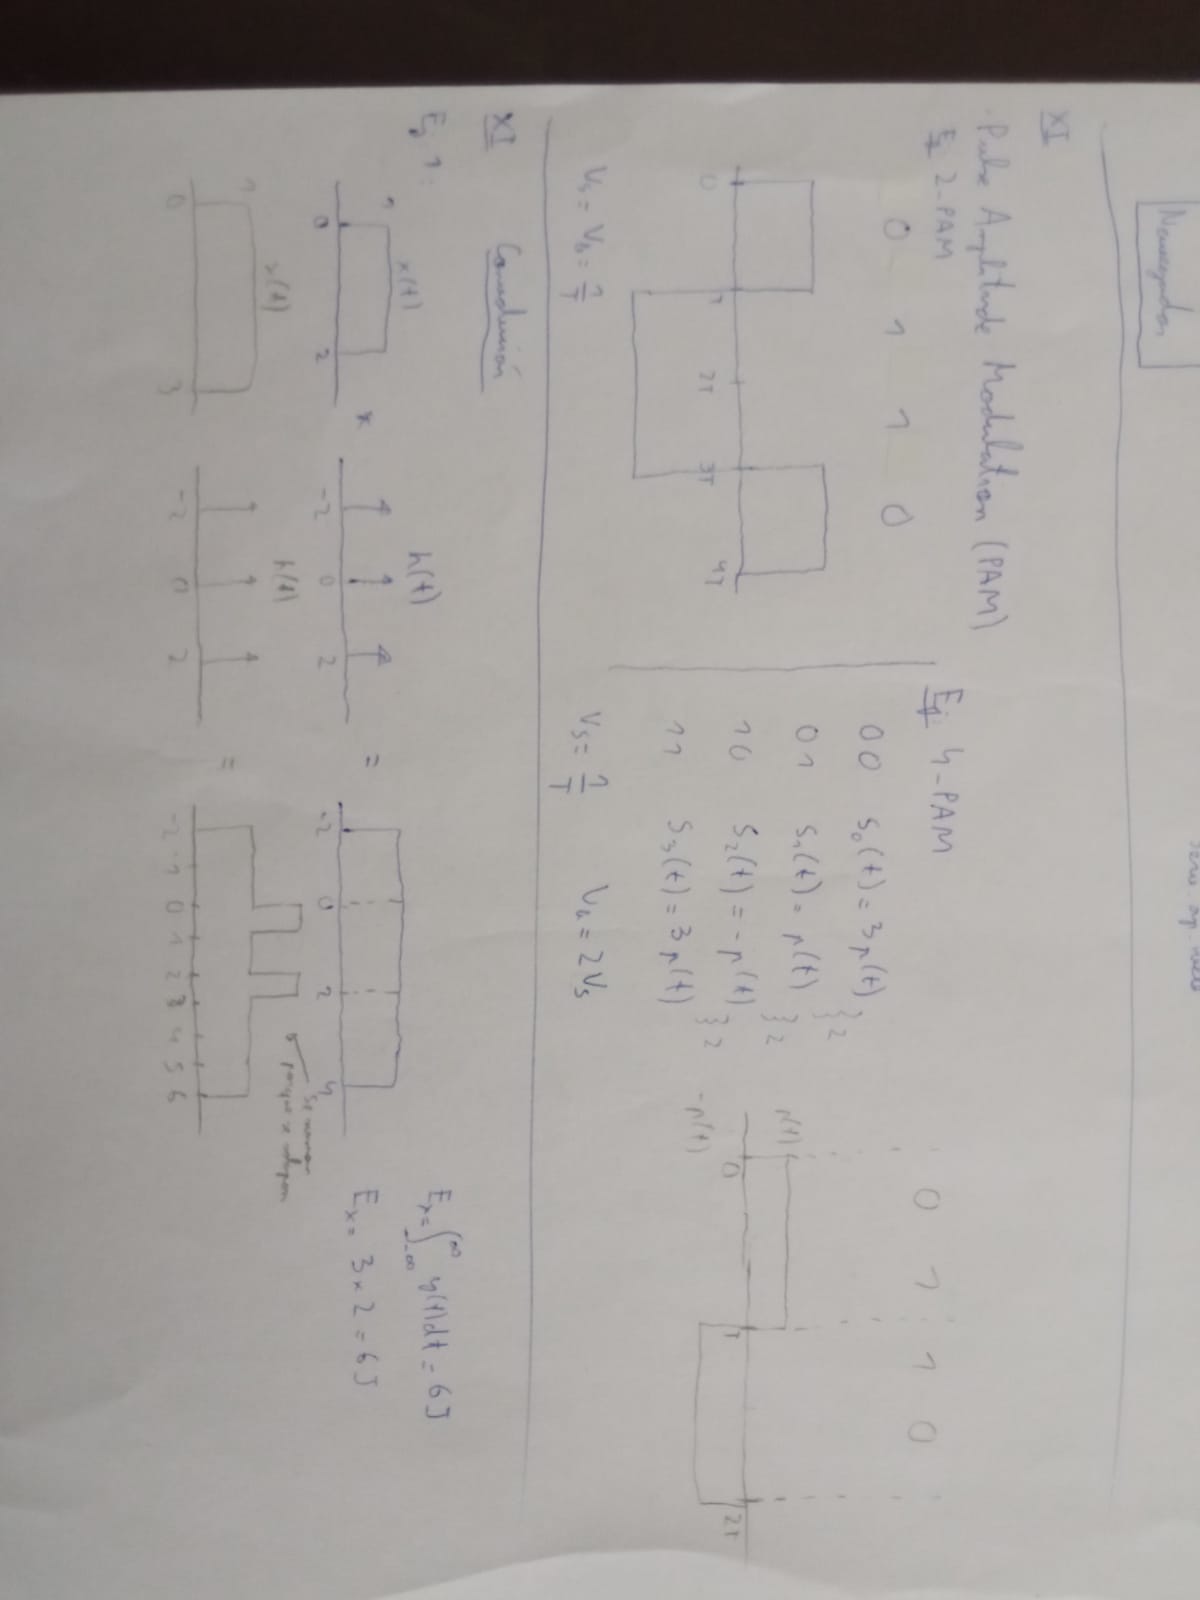 Navegador
XI
Pulse Amplitude Modulation (PAM)
Ej 2-PAM
0 1 1 0
0 T 2T 3T 4T
Vs = Vb = 1/T
Ej: 4-PAM
00 S₀(t) = 3p(t)
} 2
01 S₁(t) = p(t)
} 2
10 S₂(t) = -p(t)
} 2
11 S₃(t) = 3p(t)
Vs = 1/T Vb = 2Vs
0 1 1 0
p(t)
0 T 2T
-p(t)
XI Convolución
Ej 1:
x(t) h(t)
1 * =
0 2 -2 0 2 -2 0 2 4
Ex = ∫_{-∞}^{∞} y(t)dt = 6J
Ex = 3 × 2 = 6J
Se suman
porque se solapan
x(t) h(t)
1 =
0 3 -2 0 2 -2 -1 0 1 2 3 4 5 6